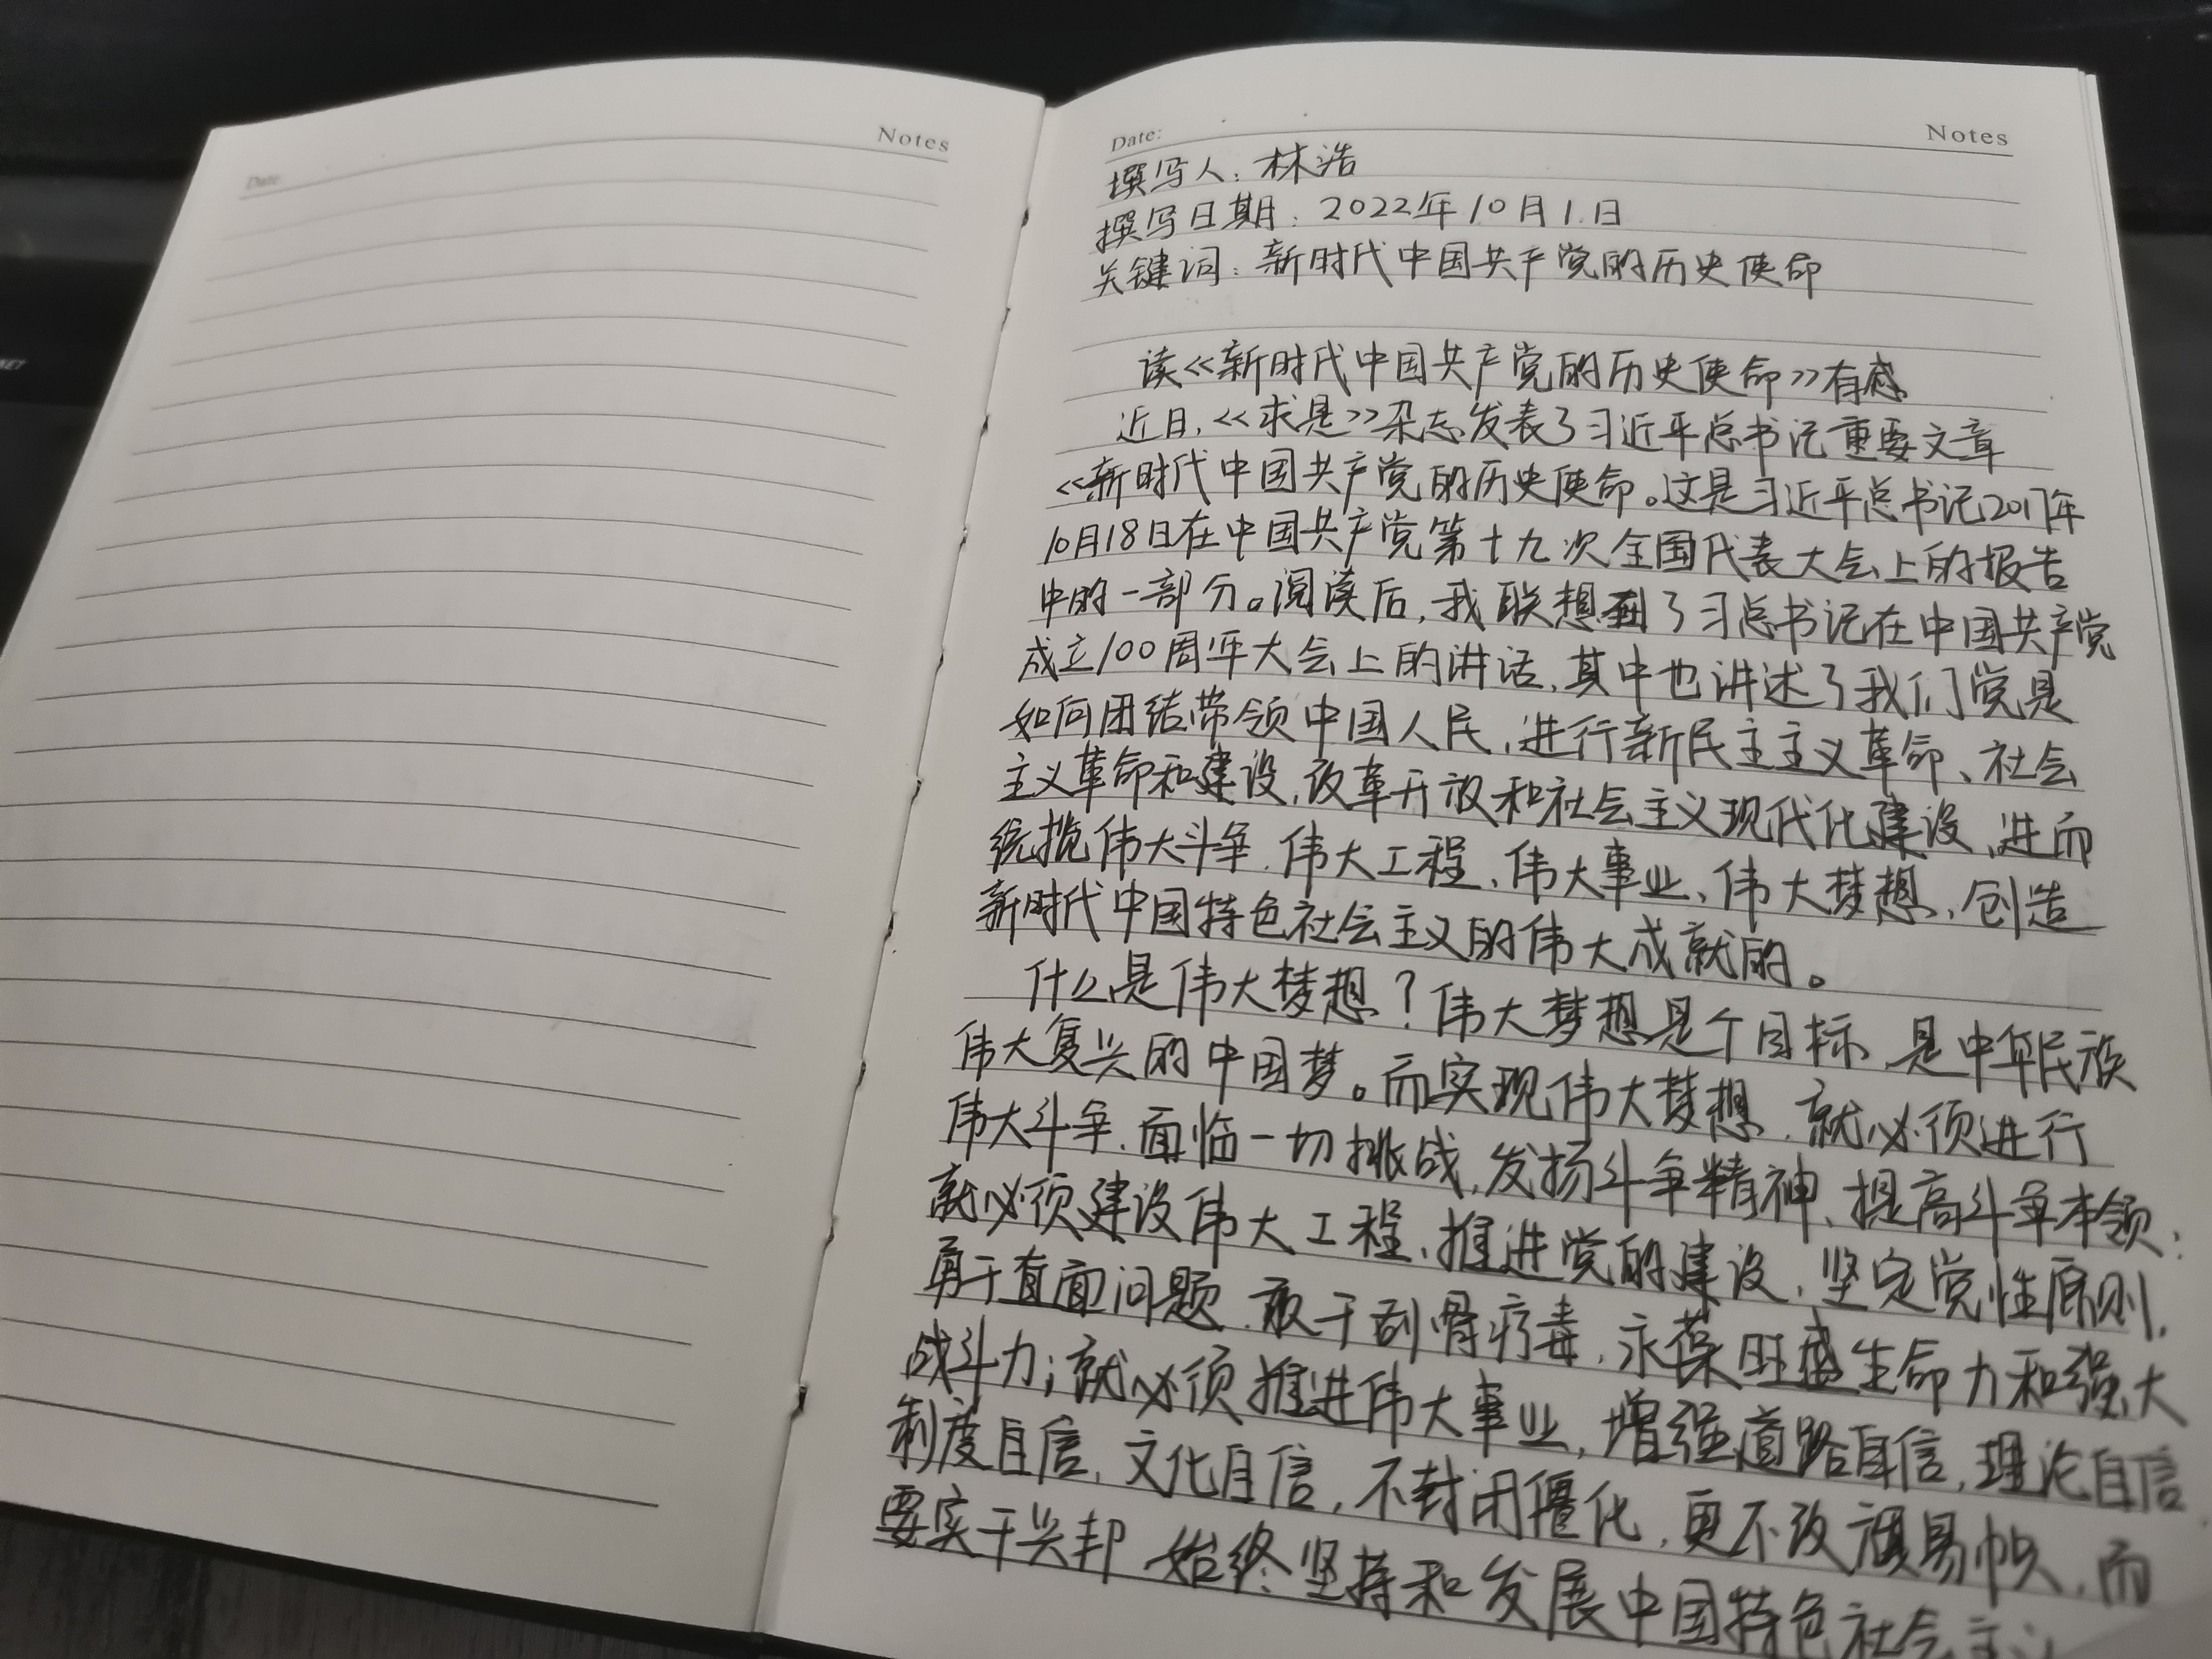 Date:
Notes
Date:
Notes
撰写人：林浩
撰写日期：2022年10月1日
关键词：新时代中国共产党的历史使命
读《新时代中国共产党的历史使命》有感
近日，《求是》杂志发表了习近平总书记重要文章
《新时代中国共产党的历史使命。这是习近平总书记2017年
10月18日在中国共产党第十九次全国代表大会上的报告
中的一部分。阅读后，我联想到了习总书记在中国共产党
成立100周年大会上的讲话，其中也讲述了我们党是
如何团结带领中国人民，进行新民主主义革命、社会
主义革命和建设，改革开放和社会主义现代化建设，进而
统揽伟大斗争、伟大工程、伟大事业、伟大梦想，创造
新时代中国特色社会主义的伟大成就的。
什么是伟大梦想？伟大梦想是个目标，是中华民族
伟大复兴的中国梦。而实现伟大梦想，就必须进行
伟大斗争，面临一切挑战，发扬斗争精神、提高斗争本领；
就必须建设伟大工程，推进党的建设，坚定党性原则，
勇于直面问题，敢于刮骨疗毒，永葆旺盛生命力和强大
战斗力；就必须推进伟大事业，增强道路自信，理论自信
制度自信，文化自信，不封闭僵化，更不改旗易帜，而
要实干兴邦 始终坚持和发展中国特色社会主义